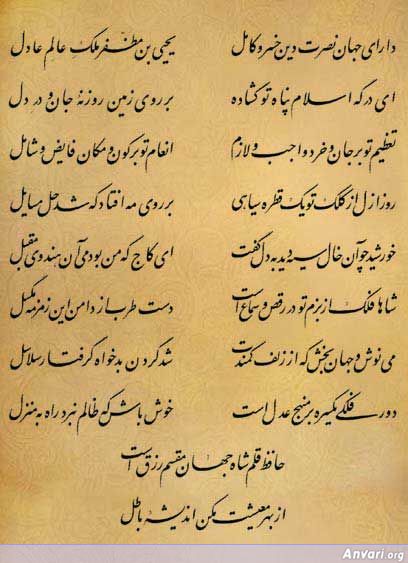 دارای جهان نصرت دین خسرو کامل
یحیی بن مظفر ملک عالم عادل
ای درگه اسلام پناه تو گشاده
بر روی زمین روزنهٔ جان و در دل
تعظیم تو بر جان و خرد واجب و لازم
انعام تو بر کون و مکان فایض و شامل
روز ازل از کلک تو یک قطره سیاهی
بر روی مه افتاد که شد حل مسایل
خورشید چو آن خال سیه دید به دل گفت
ای کاج که من بودمی آن هندوی مقبل
شاها فلک از بزم تو در رقص و سماع است
دست طرب از دامن این زمزمه مگسل
می نوش و جهان بخش که از زلف کمندت
شد گردن بدخواه گرفتار سلاسل
دور فلکی یکسره بر منهج عدل است
خوش باش که ظالم نبرد راه به منزل
حافظ قلم شاه جهان مقسم رزق است
از بهر معیشت مکن اندیشه باطل
Anvari.org